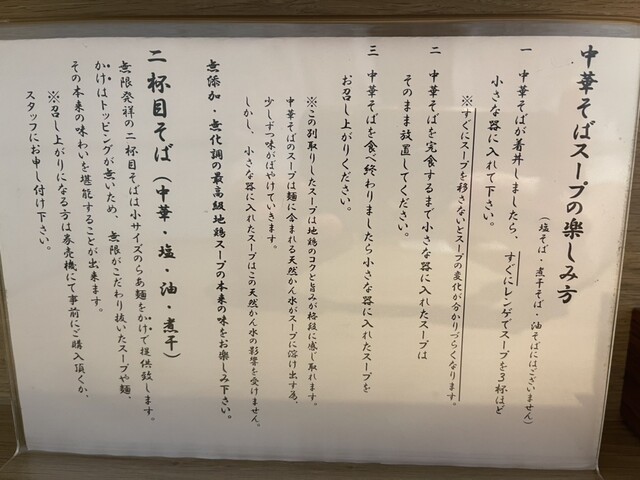 中華そばスープの楽しみ方
(塩そば・煮干そば・油そばにはございません)
一 中華そばが着丼しましたら、すぐにレンゲでスープを3杯ほど
小さな器に入れて下さい。
※すぐにスープを移さないとスープの変化が分かりづらくなります。
二 中華そばを完食するまで小さな器に入れたスープは
そのまま放置してください。
三 中華そばを食べ終わりましたら小さな器に入れたスープを
お召し上がりください。
※この別取りしたスープは地鶏のコクと旨みが格段に感じ取れます。
中華そばのスープは麺に含まれる天然かん水がスープに溶け出す為、
少しずつ味がぼやけていきます。
しかし、小さな器に入れたスープはこの天然かん水の影響を受けません。
無添加・無化調の最高級地鶏スープの本来の味をお楽しみ下さい。
二杯目そば(中華・塩・油・煮干)
無限発祥の二杯目そばは小サイズのらあ麺をかけで提供致します。
かけはトッピングが無いため、無限がこだわり抜いたスープや麺、
その本来の味わいを堪能することが出来ます。
※召し上がりになる方は券売機にて事前にご購入頂くか、
スタッフにお申し付け下さい。